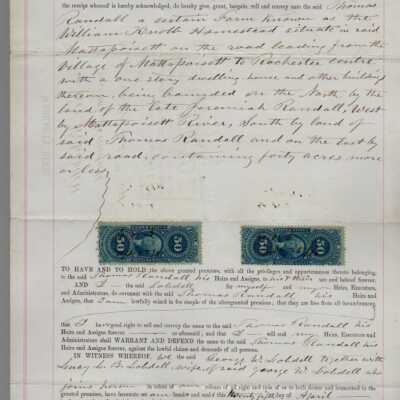 the receipt whereof is hereby acknowledged, do hereby give, grant, bargain, sell and convey unto the said Thomas
Randall a certain Farm known as the
William Homestead situate in said
Mattapoisett on the road leading from the
village of Mattapoisett to Rochester centre
with a one story dwelling house and other building
thereon, being bounded on the North by the
land of the late Jeremiah Randall, West
by Mattapoisett River, South by land of
said Thomas Randall and on the East by
said road, containing forty acres more
or less
50 50
50 50
TO HAVE AND TO HOLD the above granted premises, with all the privileges and appurtenances thereto belonging,
to the said Thomas Randall his Heirs and Assigns, to their use and behoof forever.
AND I the said for myself and my Heirs, Executors,
and Administrators, do covenant with the said Thomas Randall his Heirs and
Assigns, that I am lawfully seized in fee simple of the aforegranted premises; that they are free from all incumbrances,
that I have good right to sell and convey the same to the said Thomas Randall his
Heirs and Assigns forever as aforesaid; and that I will and my Heirs, Executors, and
Administrators shall WARRANT AND DEFEND the same to the said Thomas Randall his
Heirs and Assigns forever, against the lawful claims and demands of all persons.
IN WITNESS WHEREOF, we the said George W. together with
wife of said George W.
joins herein in token of release of all right and title of or to both dower and homestead in the
granted premises, have hereunto set our hands and seals this twenty fifth day of April